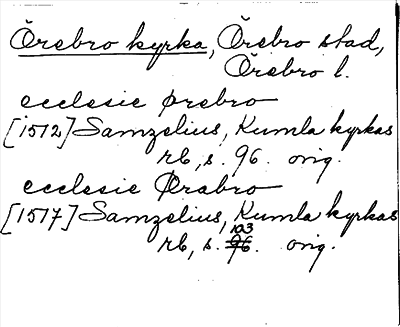 Örebro kyrka, Örebro stad,
Örebro l.
ecclesie Ørebro
[1512] Samzelius, Kumla kyrkas
rb, s. 96. orig.
ecclesie Ørabro
[1517] Samzelius, Kumla kyrkas
103
rb, s. 96. orig.